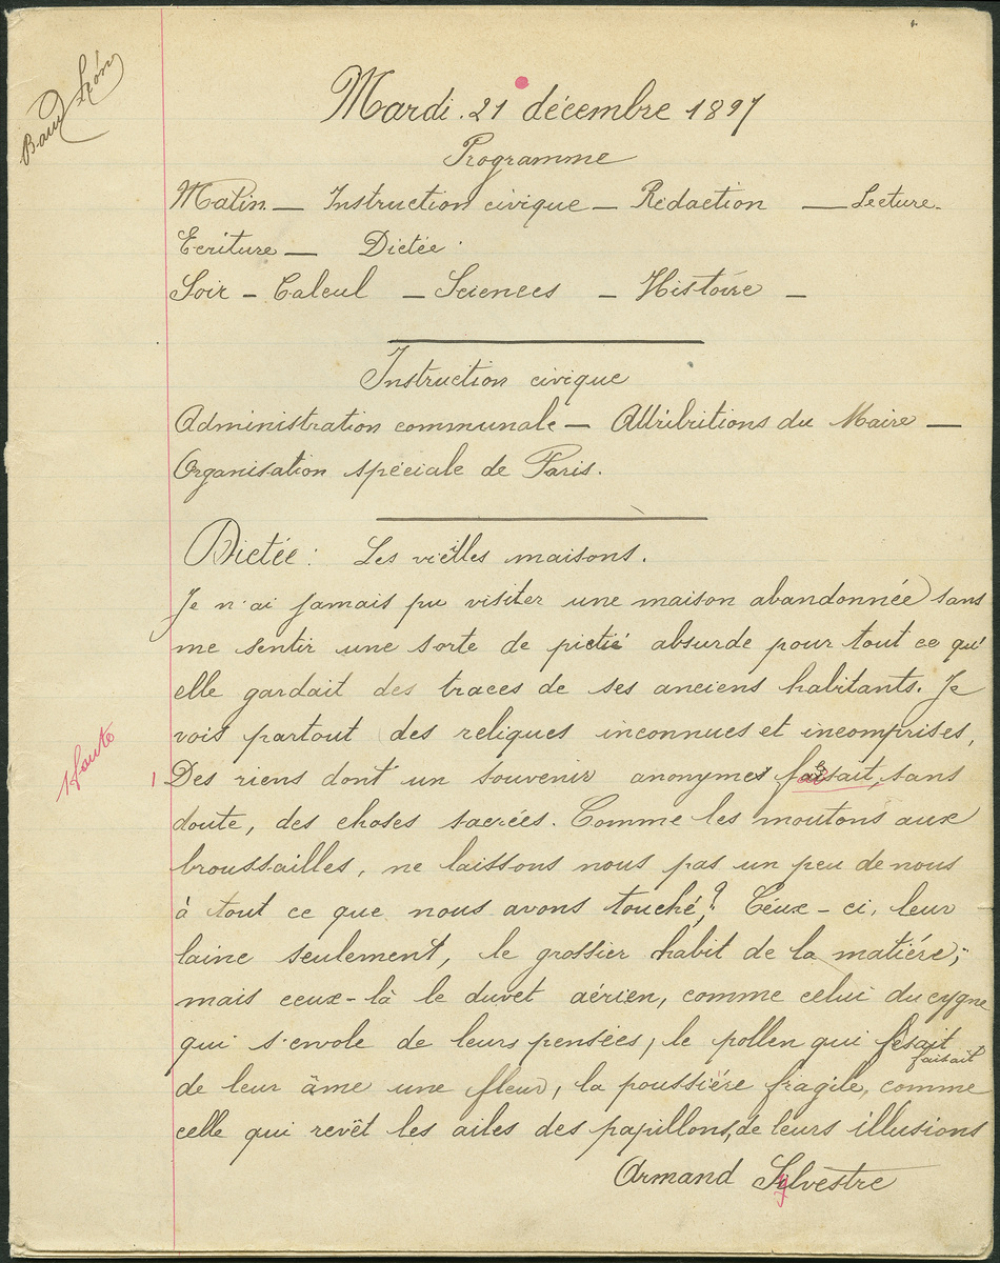 Léon
Mardi. 21 décembre 1897
Programme
Matin _ Instruction civique _ Rédaction _ Lecture.
Ecriture _ Dictée.
Soir - Calcul _ Sciences _ Histoire _
Instruction civique
Administration communale _ Attribitions du Maire _
Organisation spéciale de Paris.
Dictée : Les vieilles maisons.
Je n'ai jamais pu visiter une maison abandonnée sans
me sentir une sorte de pictié absurde pour tout ce qu'
elle gardait des traces de ses anciens habitants. Je
vois partout des reliques inconnues et incomprises,
1 faute
1 Des riens dont un souvenir anonymes faisait, sans
doute, des choses sacrées. Comme les moutons aux
broussailles, ne laissons nous pas un peu de nous
à tout ce que nous avons touché,? Ceux-ci, leur
laine seulement, le grossier habit de la matiére;
mais ceux-là le duvet aérien, comme celui du cygne
qui s'envole de leurs pensées, le pollen qui fesait
faisait
de leur âme une fleur, la poussiére fragile, comme
celle qui revêt les ailes des papillons, de leurs illusions
Armand Sylvestre